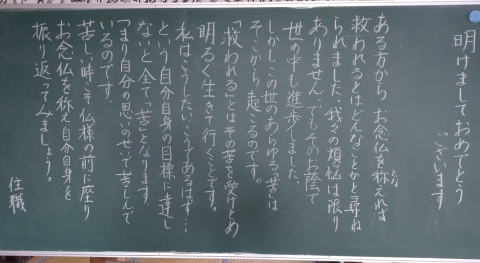 明けましておめでとう
ございます
ある方から、お念仏を称えれば
とな
救われるとはどんなことかと尋ね
られました。我々の煩悩は限り
ありません。でもそのお蔭で
世の中も進歩しました。
しかしこの世のあらゆる苦は
そこから起こるのです。
「救われる」とはその苦を受けとめ
明るく生きて行くことです。
私はこうしたい、こうであるはず…
という自分自身の目標に達し
ないと全て「苦」となります
つまり自分の思いのせいで苦しんで
いるのです。
苦しい時こそ仏様の前に座り
お念仏を称え自分自身を
振り返ってみましょう。
住職